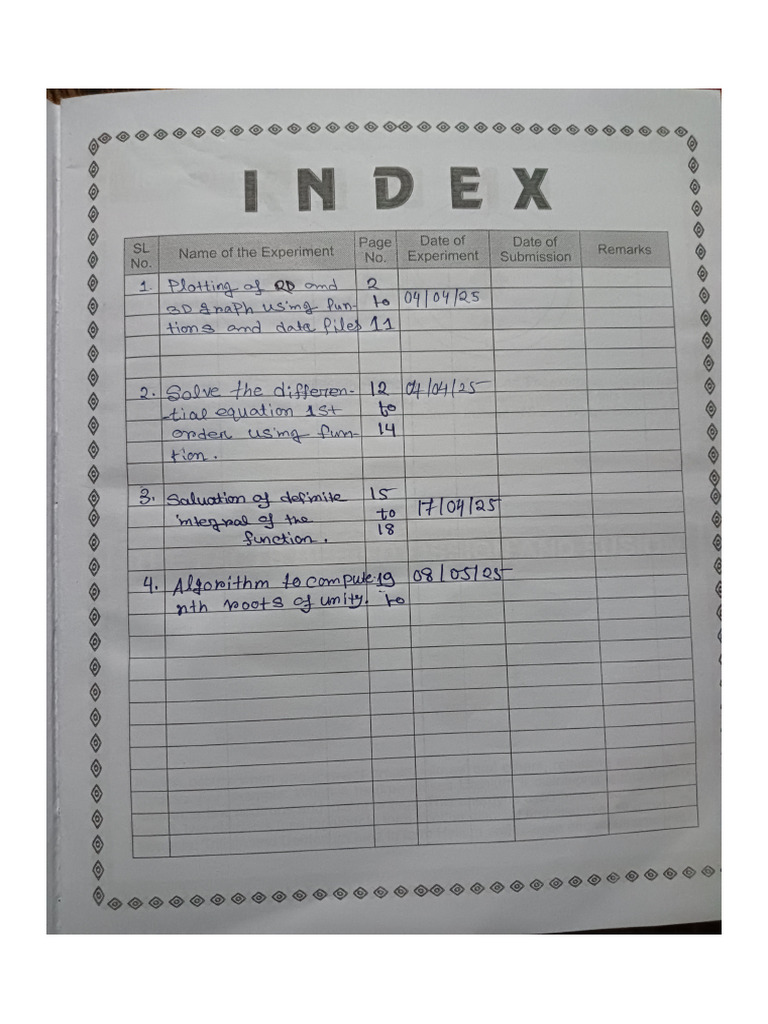 INDEX
SL No. Name of the Experiment Page No. Date of Experiment Date of Submission Remarks
1. Plotting of 2D and 2
3D graph using fun- to 04/04/25
tions and data files 11
2. Solve the differen- 12 04/04/25
tial equation 1st to
order using fun- 14
tion.
3. Saluation of definite 15
integral of the to 17/04/25
function. 18
4. Algorithm to compute 19 08/05/25
nth roots of unity. to